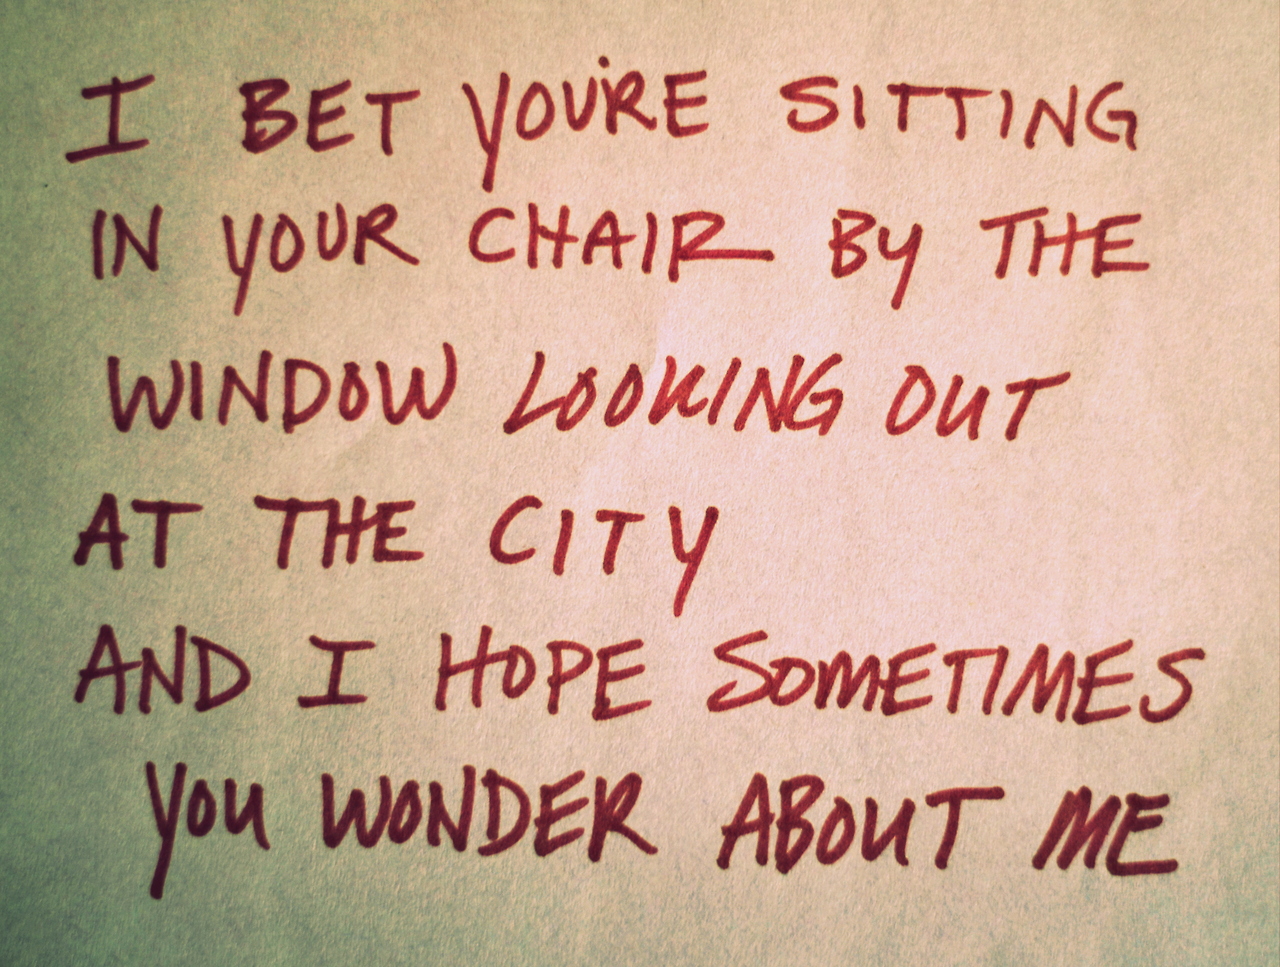 I BET YOU'RE SITTING
IN YOUR CHAIR BY THE
WINDOW LOOKING OUT
AT THE CITY
AND I HOPE SOMETIMES
YOU WONDER ABOUT ME